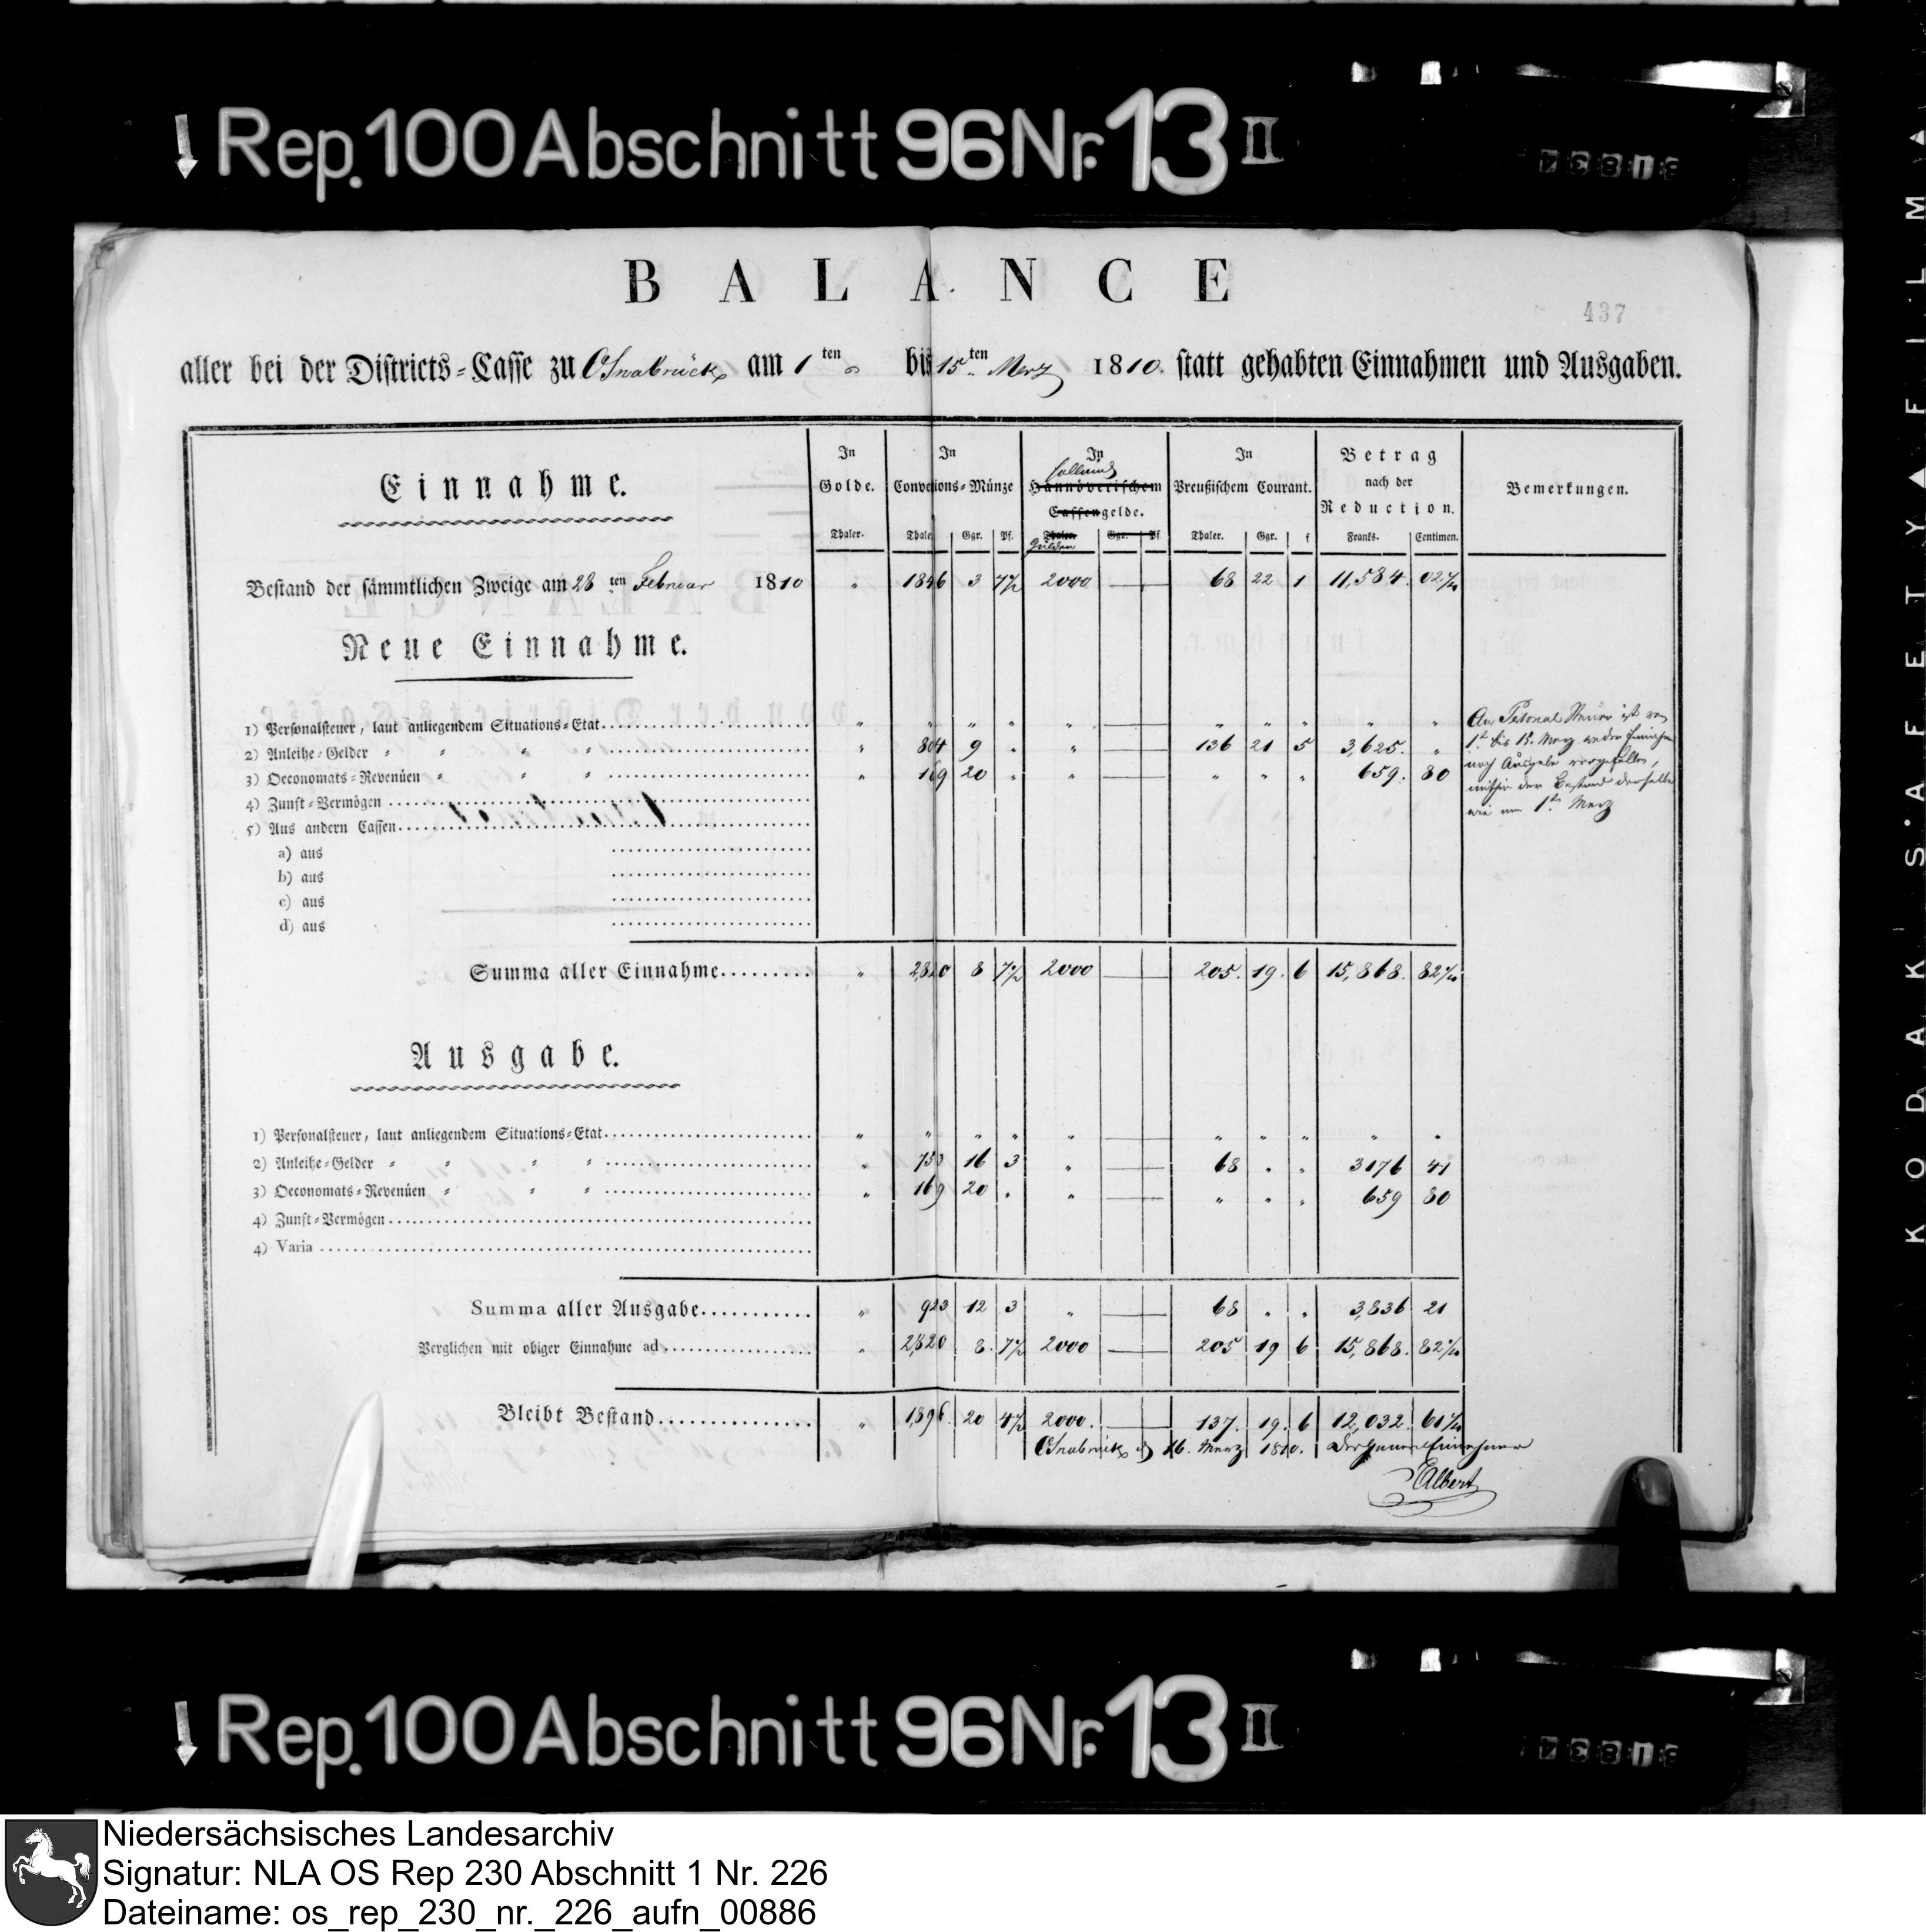 Rep. 100 Abschnitt 96 Nr. 13 II
BALANCE
437
aller bei der Districts-Casse zu Osnabrück am 1ten bis 15ten Merz 1810. statt gehabten Einnahmen und Ausgaben.
Einnahme.
In Golde.
In Conventions-Münze
In Holländ Hannöverischem Cassengelde.
In Preußischem Courant.
Betrag nach der Reduction.
Bemerkungen.
Thaler. Thaler Ggr. Pf. Thaler. Gulden Ggr. Pf Thaler. Ggr. f Franks. Centimen.
Bestand der sämmtlichen Zweige am 28ten Februar 1810 " 1846 3 7½ 2000 — 68 22 1 11,584. 02
Neue Einnahme.
1) Personalsteuer, laut anliegendem Situations-Etat " " " " " — " " " " "
2) Anleihe-Gelder " " " " " 804 9 " " — 136 21 5 3,625. "
3) Oeconomats-Revenüen " " " " 169 20 " " — " " " 659. 80
4) Zunft-Vermögen
5) Aus andern Cassen
a) aus
b) aus
c) aus
d) aus
An Personal Steuer ist vom
1t bis 15. Merz weder Einnahme
noch Ausgabe vorgefallen,
mithin der Bestand derselbe
wie am 1ten Merz
Summa aller Einnahme " 2,820 8 7½ 2000 — 205. 19. 6 15,868. 82
Ausgabe.
1) Personalsteuer, laut anliegendem Situations-Etat " " " " " — " " " " "
2) Anleihe-Gelder " " " " " 753 16 3 " — 68 " " 3176 41
3) Oeconomats-Revenüen " " " " 169 20 " " — " " " 659 80
4) Zunft-Vermögen
4) Varia
Summa aller Ausgabe " 923 12 3 " — 68 " " 3,836 21
Verglichen mit obiger Einnahme ad " 2,820 8. 7½ 2000 — 205 19 6 15,868. 82
Bleibt Bestand " 1,896. 20 4½ 2000. — 137. 19. 6 12,032. 61
Osnabrück d 16. Merz 1810. Der General Einnehmer
Albert
Rep. 100 Abschnitt 96 Nr. 13 II
KODAK SAFETY FILM
Niedersächsisches Landesarchiv
Signatur: NLA OS Rep 230 Abschnitt 1 Nr. 226
Dateiname: os_rep_230_nr._226_aufn_00886